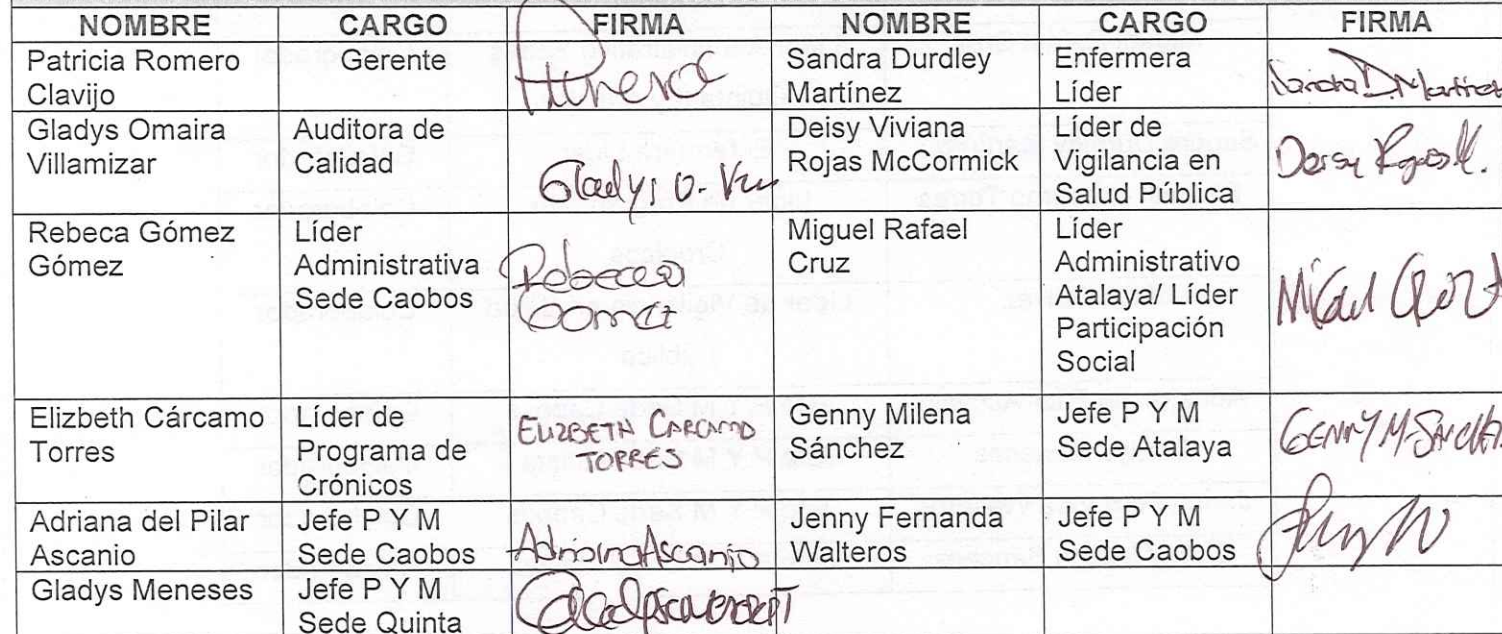 NOMBRE CARGO FIRMA NOMBRE CARGO FIRMA
Patricia Romero Clavijo Gerente Sandra Durdley Martínez Enfermera Líder Sandra D. Martinez
Gladys Omaira Villamizar Auditora de Calidad Gladys O. Deisy Viviana Rojas McCormick Líder de Vigilancia en Salud Pública Deisy Rojas M.
Rebeca Gómez Gómez Líder Administrativa Sede Caobos Rebeca Gómez Miguel Rafael Cruz Líder Administrativo Atalaya/ Líder Participación Social Miguel Cruz
Elizbeth Cárcamo Torres Líder de Programa de Crónicos ELIZBETH CARCAMO TORRES Genny Milena Sánchez Jefe P Y M Sede Atalaya GENNY M. SANCHEZ
Adriana del Pilar Ascanio Jefe P Y M Sede Caobos Adriana Ascanio Jenny Fernanda Walteros Jefe P Y M Sede Caobos
Gladys Meneses Jefe P Y M Sede Quinta